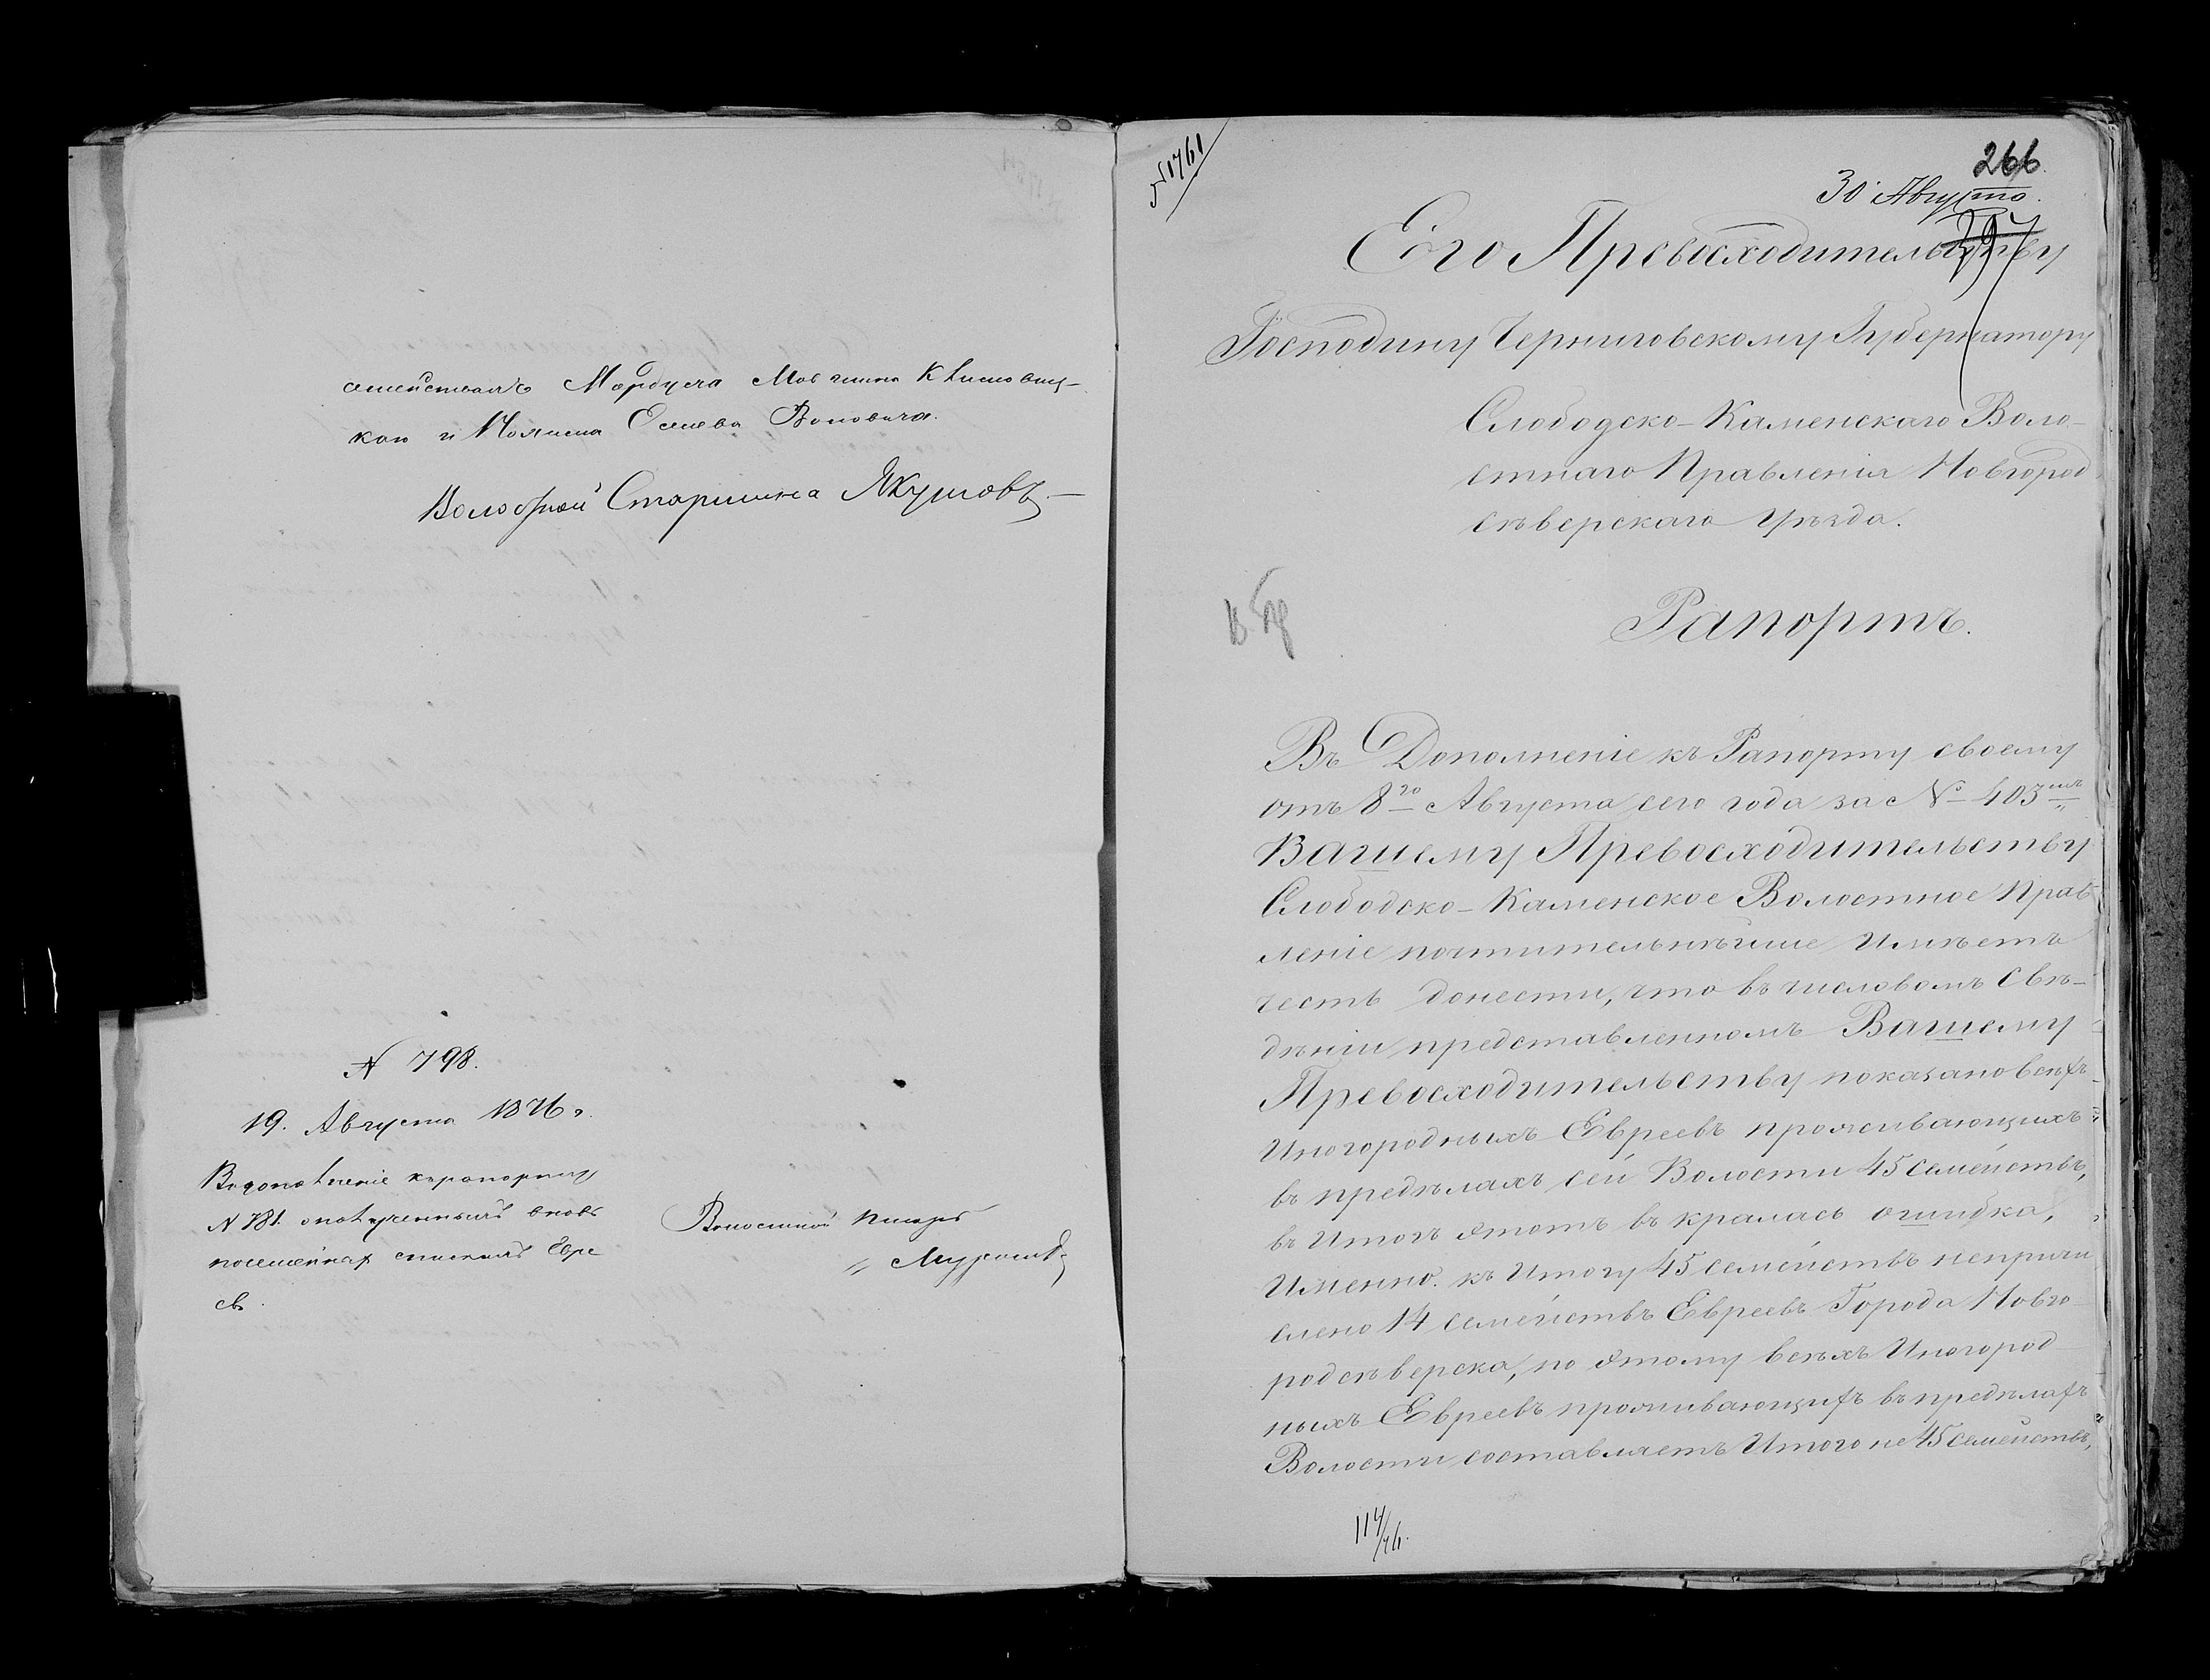 семействамъ Мордуха
кою и Еліева
Волостной Старшина Якушовъ
N 798.
19. Августа 1876 г.
Въ дополненіе къ рапорту
N 781. вновь
посемейнах спискахъ Евре
евъ.
Волостной Писарь
№ 1761
266.
30 Августа.
Его Превосходительству
Господину Черниговскому Губернатору
Слободско-Каменскаго Воло-
стнаго Правленія Новгород
сѣверскаго уѣзда.
Рапортъ.
Въ Дополненіе къ Рапорту своему
отъ 8го Августа сего года за № 403мъ
Вашему Превосходительству
Слободско-Каменское Волостное Прав-
леніе почтительнѣйше Имѣетъ
честь донести, что въ числовомъ Свѣ-
дѣніи представленномъ Вашему
Превосходительству показано всѣхъ
Иногородныхъ Евреевъ проживающихъ
въ предѣлахъ сей Волости 45 семействъ,
въ Итогъ этотъ въ кралась ошибка,
Именно: къ Итогу 45 семействъ неприч
слено 14 семействъ Евреевъ Города Новго-
родсѣверска, по этому всѣхъ Иногород-
ныхъ Евреевъ проживающихъ въ предѣлахъ
Волости составляетъ Итого не 45 семействъ,
114/76.